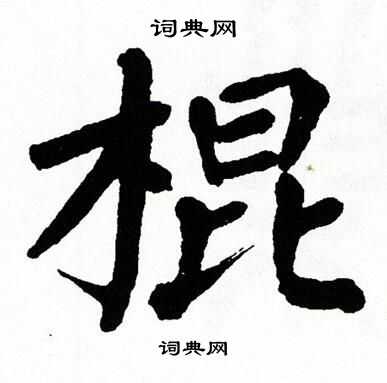 词典网
棍
词典网